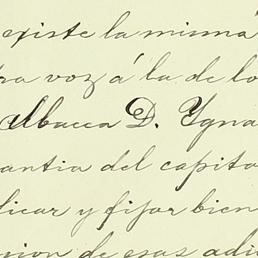 existe la misma
ra voz á la de lo
Ulbacea D. Ygna
antia del capita
licar y fijar bien
sion de esas adi